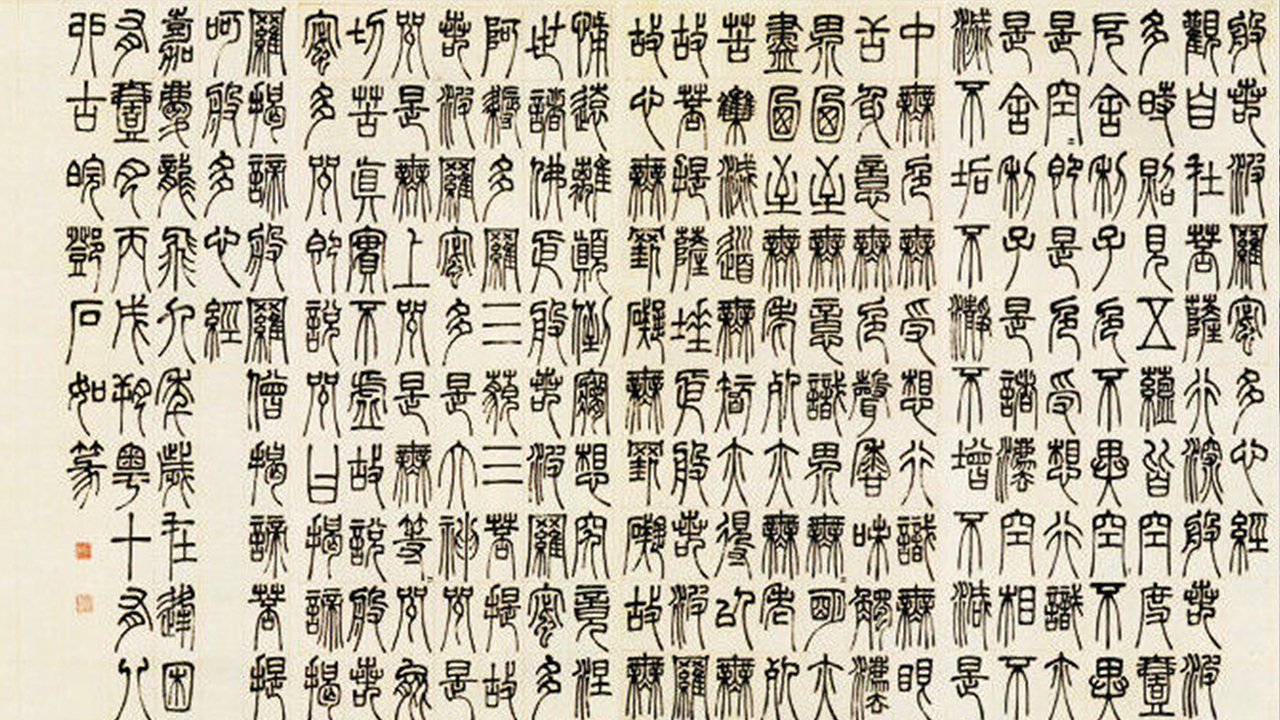 般若波羅蜜多心經
觀自在菩薩行深般若波
多時照見五蘊皆空度壹
厄舍利子色不異空不異
是空即是色受想行識亦
是舍利子是諸法空相不
滅不垢不淨不增不減是
中無色無受想行識無眼
舌身意無色聲香味觸法
界乃至無意識界無明亦
盡乃至無老死亦無老死
苦集滅道無智亦得以無
故菩提薩埵依般若波羅
故心無罣礙無罣礙故無
怖遠離顛倒夢想究竟涅
世諸佛依般若波羅蜜多
阿耨多羅三藐三菩提故
若波羅蜜多是大神咒是
咒是無上咒是無等咒能
切苦真實不虛故說般若
蜜多咒即說咒曰揭諦揭
羅揭諦般羅僧揭諦菩提
呵般多心經
嘉慶龍飛九年歲在逢困
有壹月丙戌朔粵十有八
卯古皖鄧石如篆